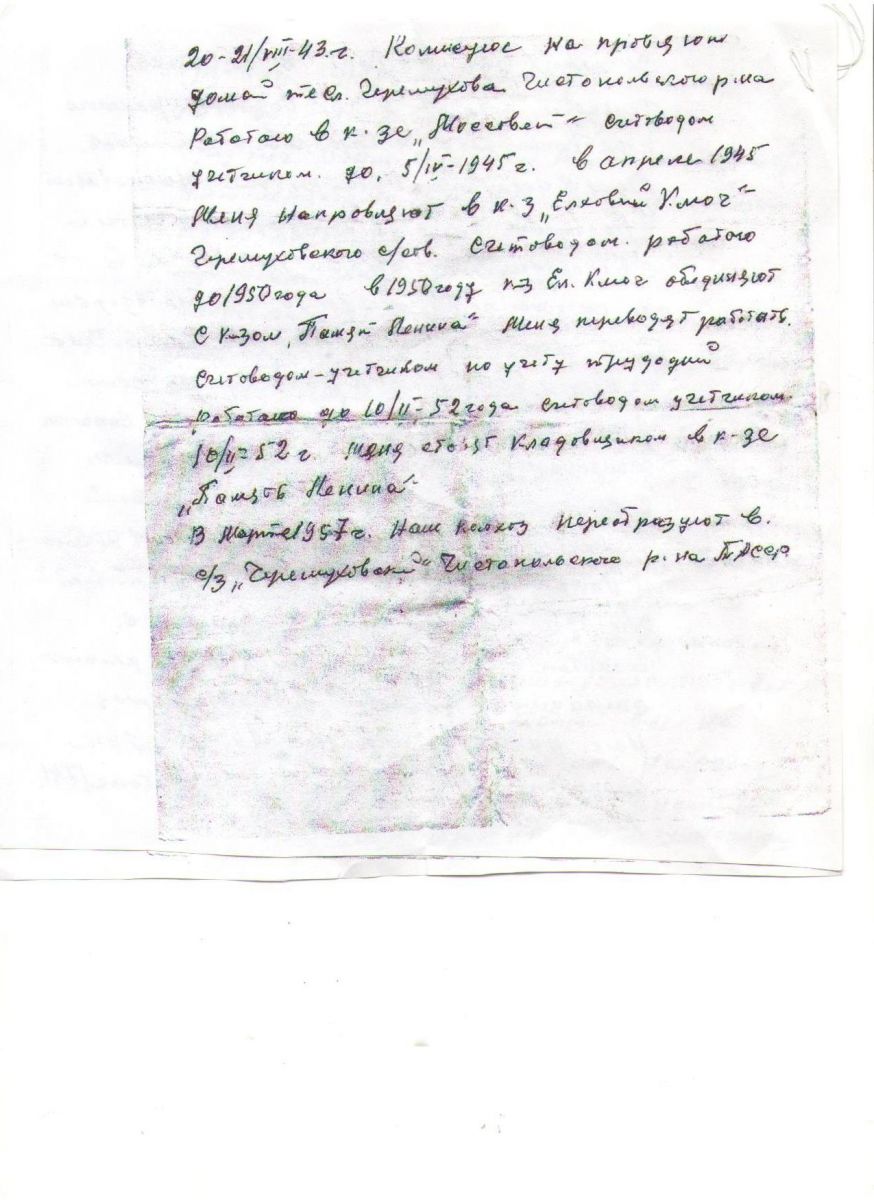 20-21/VIII-43.г. Комисуюс на провяют
домой те сл. Черемухова Чистопольского р-на
Работаю в к-зе „Моссовет" счетоводом
учетчиком. до. 5/IV-1945 г. в апреле 1945
Меня направляют в к-з „Елховый Ключ"
Черемуховского с/сов. Счетоводом. работаю
до 1950 года в 1950 году к-з Ел. Ключ обединяют
с к-зом „Памяти Ленина" Меня переводят работать.
Счетоводом-учетчиком по учету трудодней
работаю до 10/II-52 года счетоводом учетчиком.
10/II-52 г. меня стовят кладовщиком в к-зе
„Памяти Ленина"
В Марте 1957 г. Наш колхоз переобразуют в.
с/з „Черемуховский" Чистопольского р-на ТАССР